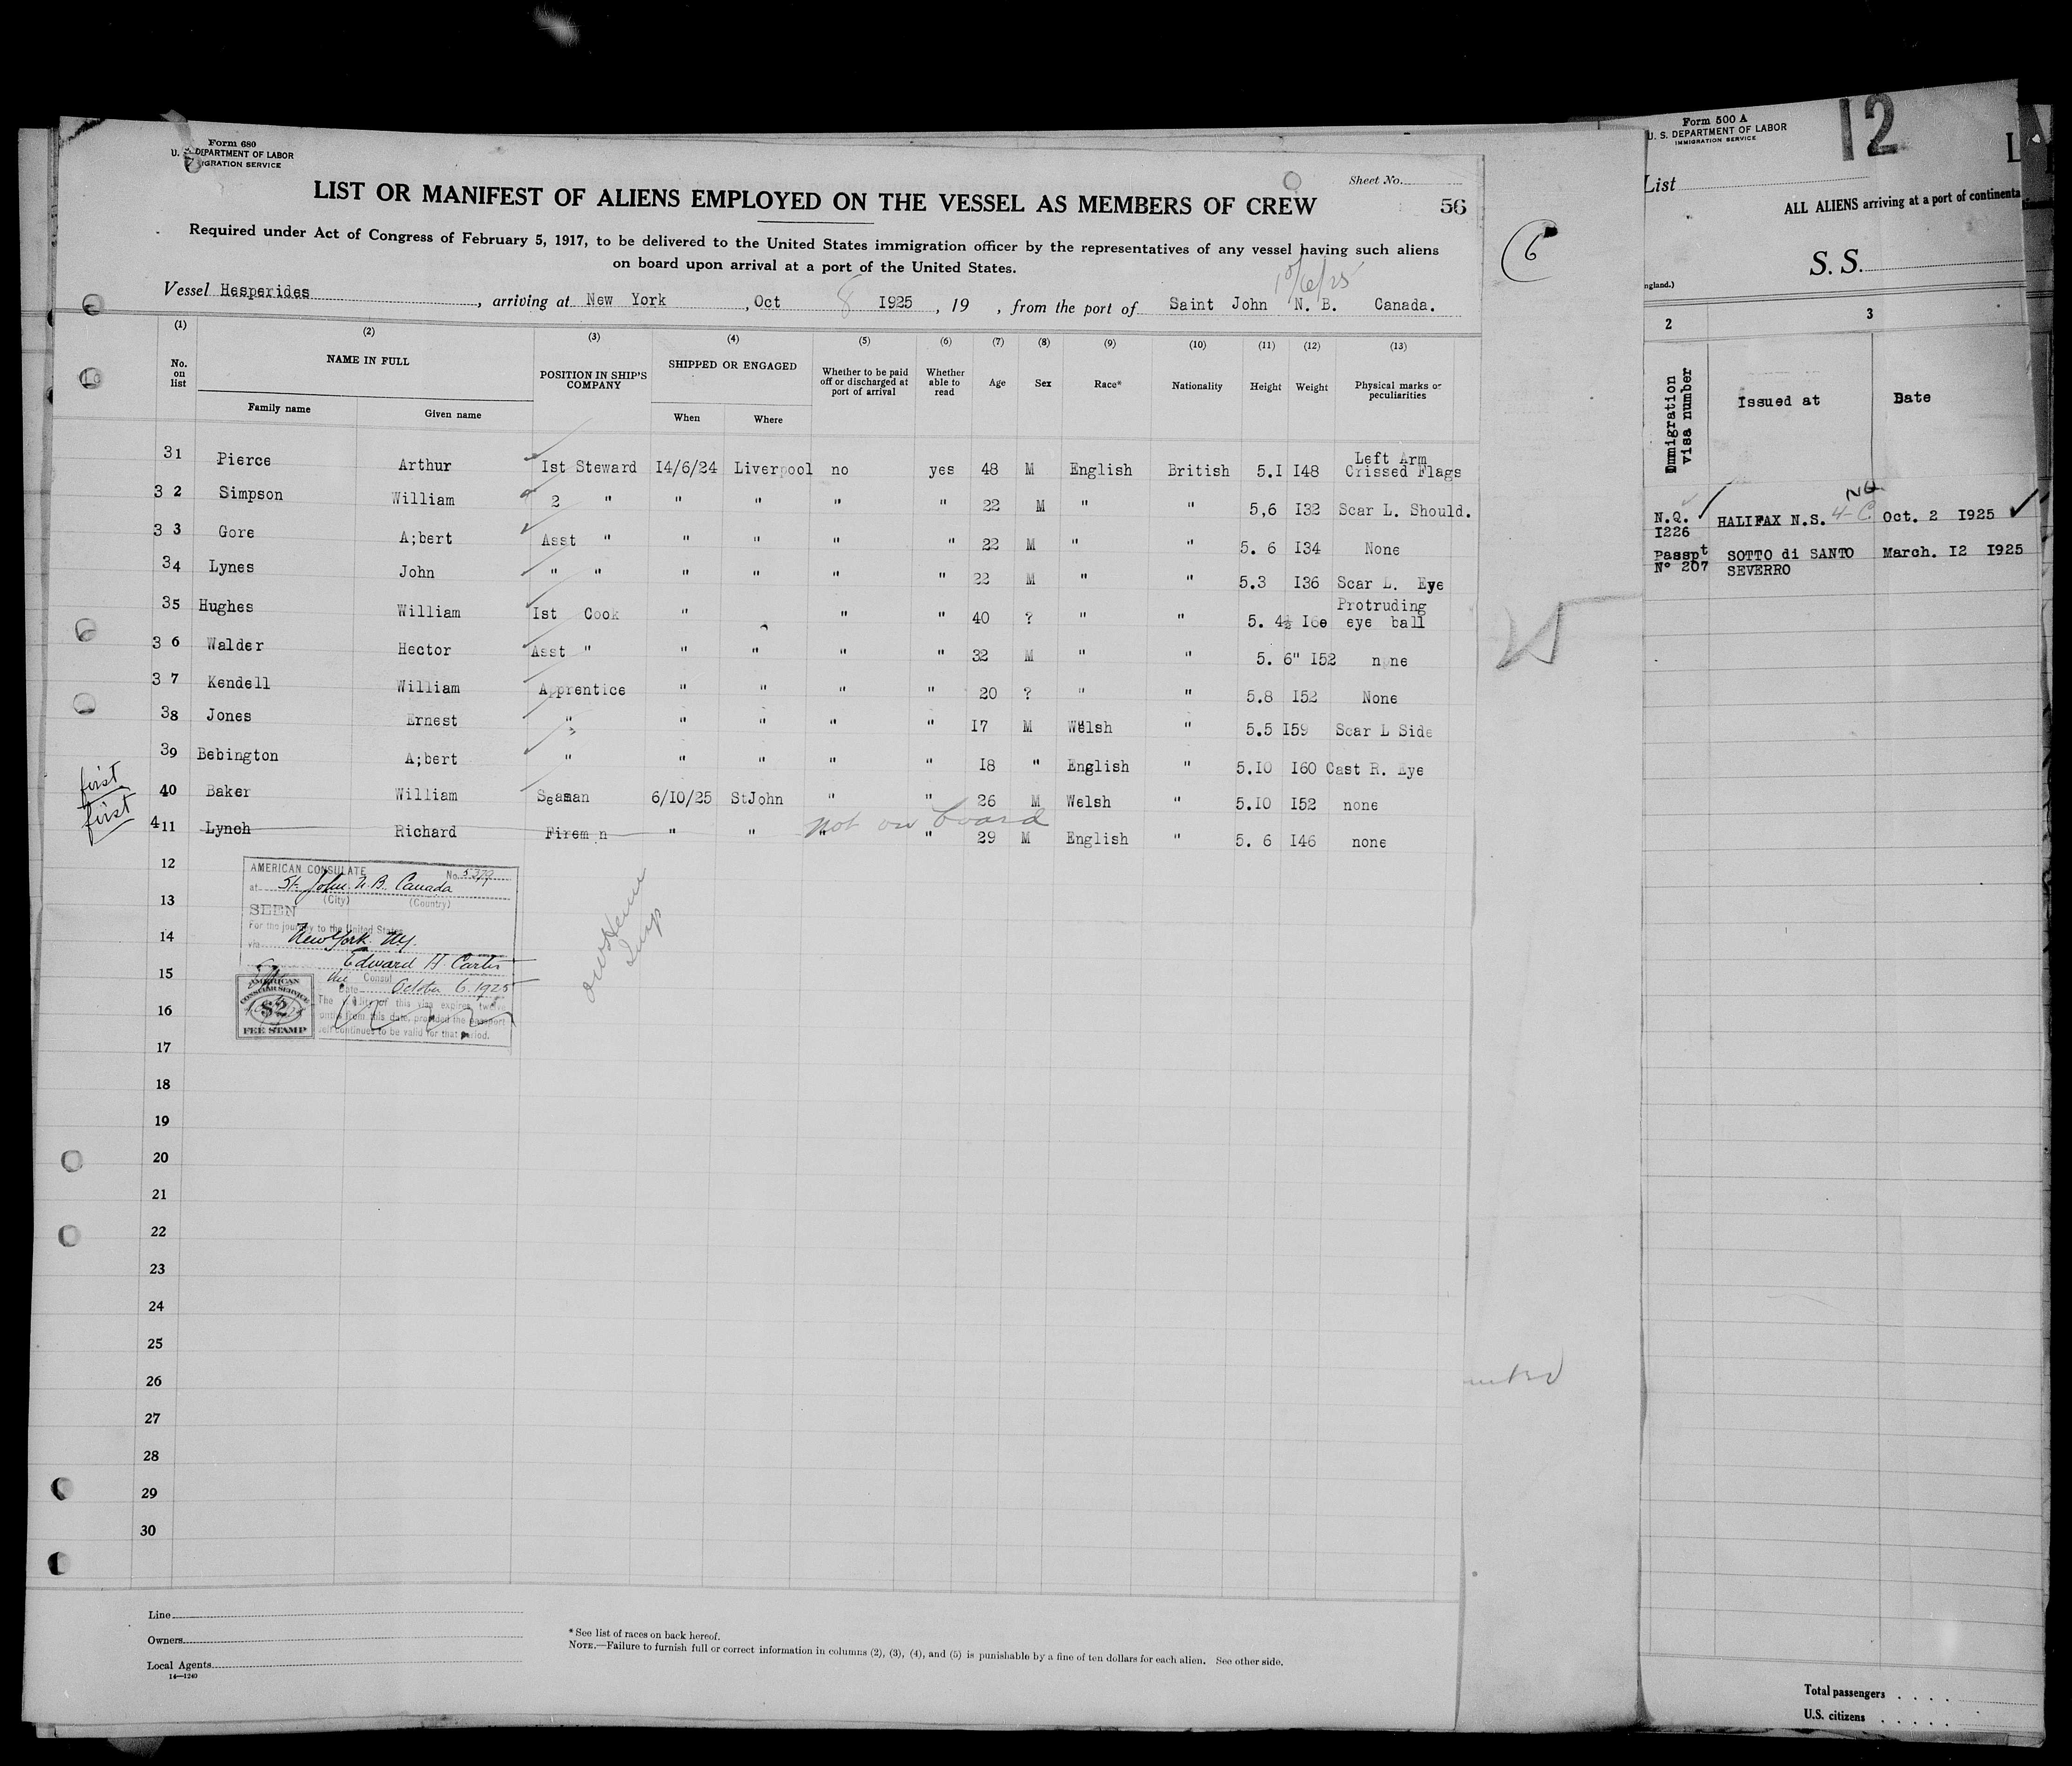 Form 680
U. S. DEPARTMENT OF LABOR
IMMIGRATION SERVICE
Sheet No.
LIST OR MANIFEST OF ALIENS EMPLOYED ON THE VESSEL AS MEMBERS OF CREW
56
Required under Act of Congress of February 5, 1917, to be delivered to the United States immigration officer by the representatives of any vessel having such aliens
on board upon arrival at a port of the United States.
10/6/25
Vessel Hesperides, arriving at New York, Oct 8 I925, 19 , from the port of Saint John N. B. Canada.
(1) (2) (3) (4) (5) (6) (7) (8) (9) (10) (11) (12) (13)
No. on list NAME IN FULL POSITION IN SHIP'S COMPANY SHIPPED OR ENGAGED Whether to be paid off or discharged at port of arrival Whether able to read Age Sex Race* Nationality Height Weight Physical marks or peculiarities
Family name Given name When Where
31 Pierce Arthur Ist Steward I4/6/24 Liverpool no yes 48 M English British 5.I I48 Left Arm Crissed Flags
3 2 Simpson William 2 " " " " " 22 M " " 5,6 I32 Scar L. Should.
3 3 Gore A;bert Asst " " " " " 22 M " " 5. 6 I34 None
34 Lynes John " " " " " " 22 M " " 5.3 I36 Scar L. Eye
35 Hughes William Ist Cook " " " 40 ? " " 5. 4½ I60 Protruding eye ball
3 6 Walder Hector Asst " " " " " 32 M " " 5. 6" I52 none
3 7 Kendell William Apprentice " " " " 20 ? " " 5.8 I52 None
38 Jones Ernest " " " " " I7 M Welsh " 5.5 I59 Scar L Side
39 Bebington A;bert " " " " " I8 " English " 5.IO I60 Cast R. Eye
first 40 Baker William Seaman 6/10/25 StJohn " " 26 M Welsh " 5.IO I52 none
first 411 Lynch Richard Firem n " " " " 29 M English " 5. 6 I46 none
not on board
12
13
14
15
16
17
18
19
20
21
22
23
24
25
26
27
28
29
30
AMERICAN CONSULATE No. 5379
at St. John N.B. Canada
(City) (Country)
SEEN
For the journey to the United States
via New York N.Y.
Edward H Carter
Consul
Date October 6. 1925
The validity of this visa expires twelve
months from this date, provided the passport
itself continues to be valid for that period.
AMERICAN
CONSULAR SERVICE
$2
FEE STAMP
Insp
Line
Owners
Local Agents
14—1240
* See list of races on back hereof.
NOTE.—Failure to furnish full or correct information in columns (2), (3), (4), and (5) is punishable by a fine of ten dollars for each alien. See other side.
6
Form 500 A
U. S. DEPARTMENT OF LABOR
IMMIGRATION SERVICE
12
L
List
ALL ALIENS arriving at a port of continenta
S. S.
ngland.)
2 3
Immigration visa number Issued at Date
N.Q. I226 HALIFAX N.S. 4-C NQ Oct. 2 I925
Passpt Nº 207 SOTTO di SANTO SEVERRO March. I2 I925
Total passengers . . . .
U.S. citizens . . . . .